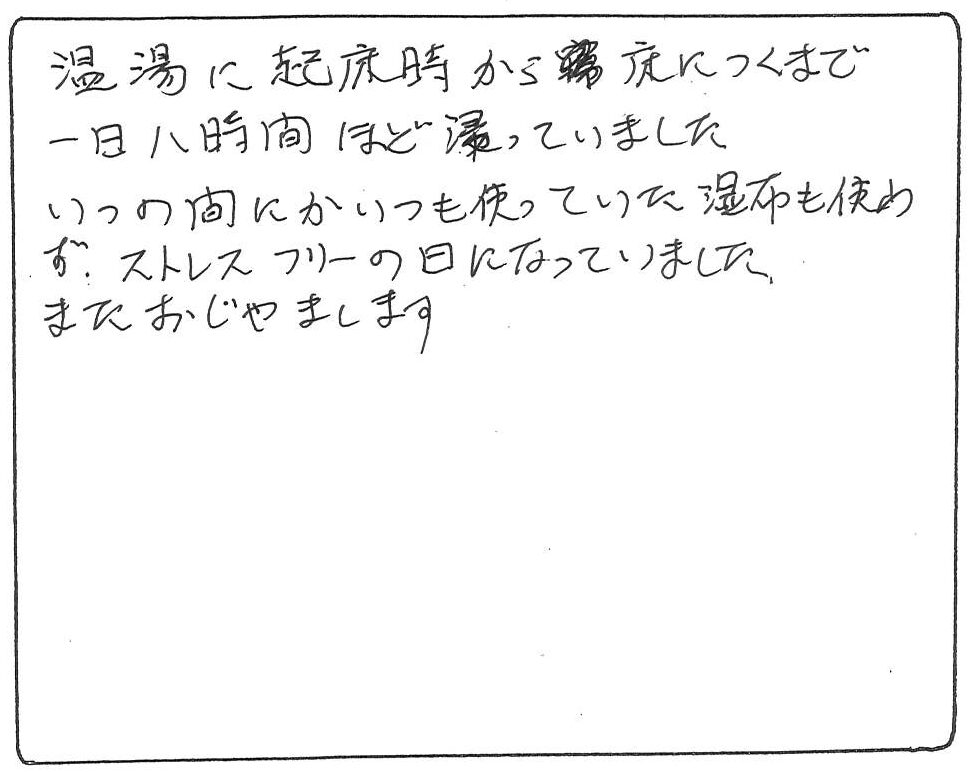 温湯に起床時から床につくまで
一日八時間ほど浸っていました
いつの間にかいつも使っていた湿布も使わ
ず、ストレスフリーの日になっていました、
またおじゃまします